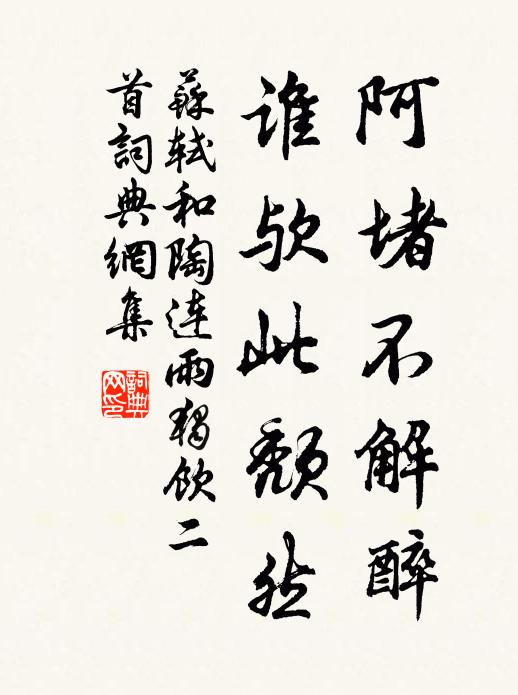 阿堵不解醉
谁欤此颓然
蘇軾和陶連雨獨飲二
首詞典網集
詞典
网印